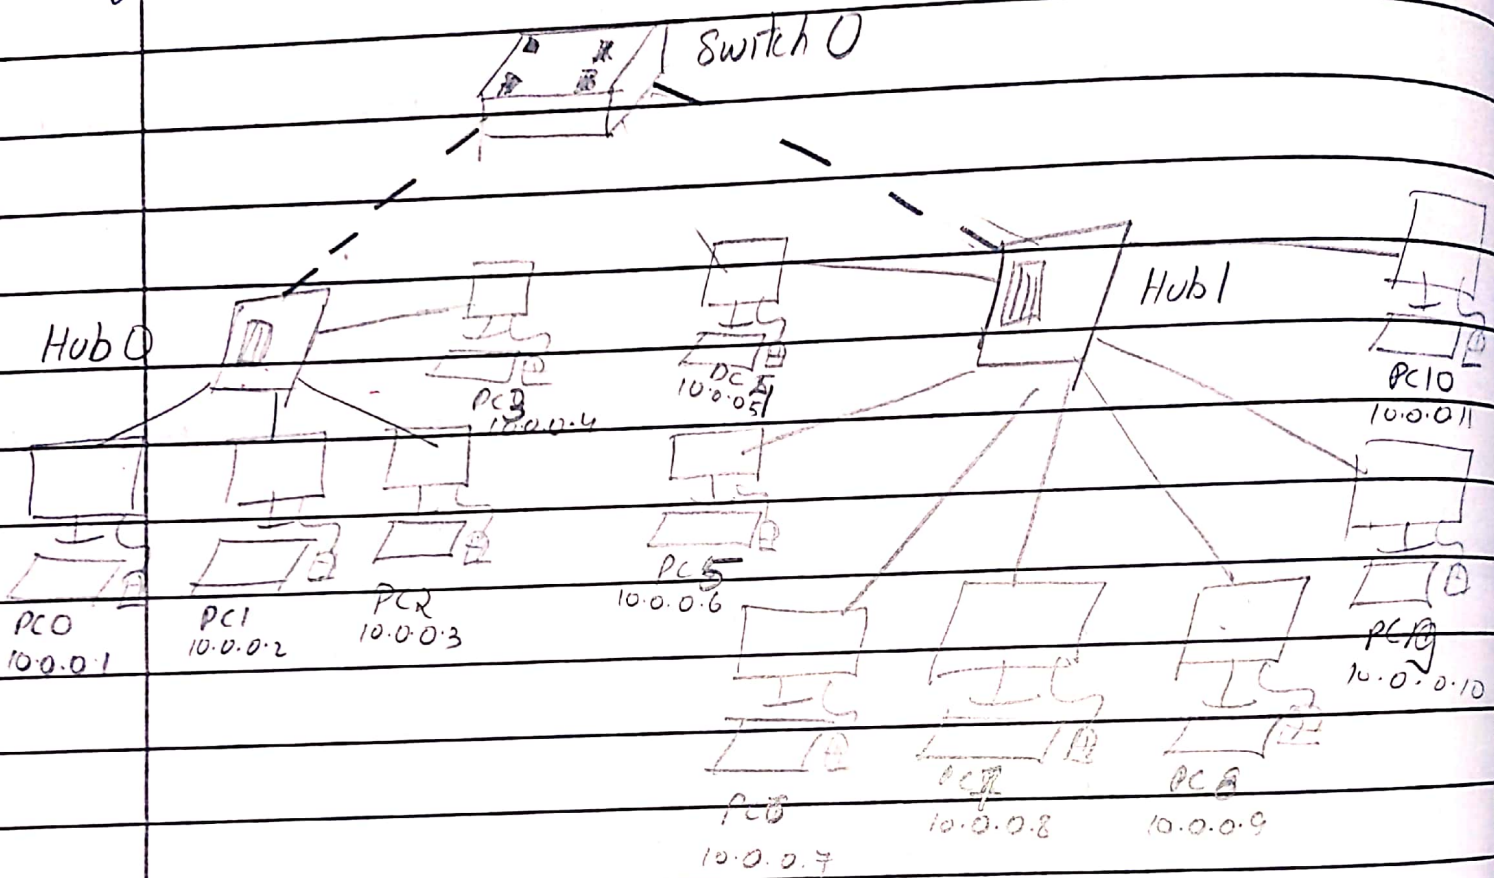 Switch 0
Hub 0
Hub 1
PC3
10.0.0.4
10.0.0.5
PC10
10.0.0.11
PC0
10.0.0.1
PC1
10.0.0.2
PC2
10.0.0.3
PC5
10.0.0.6
PC6
10.0.0.7
PC7
10.0.0.8
PC8
10.0.0.9
PC9
10.0.0.10